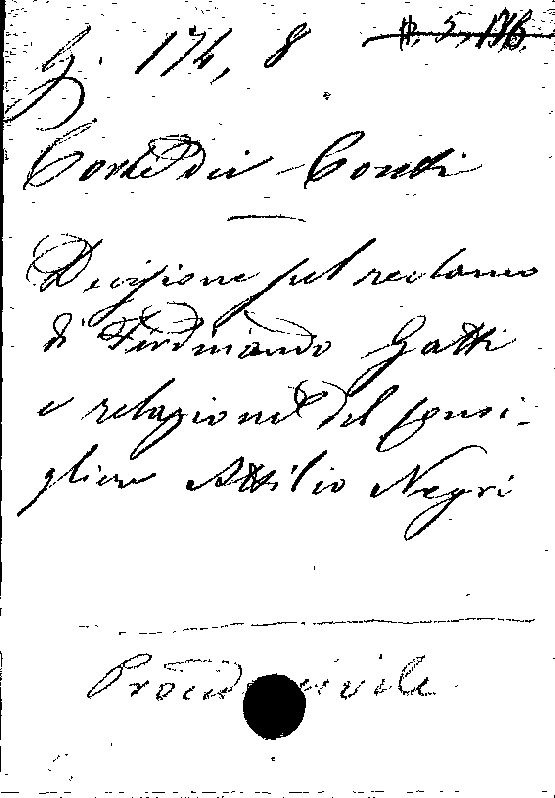 G. 174, 8 B. 5, 176.
Corte dei Conti
Decisione sul reclamo
di Ferdinando Gatti
e relazione del consi-
gliere Attilio Negri
civile